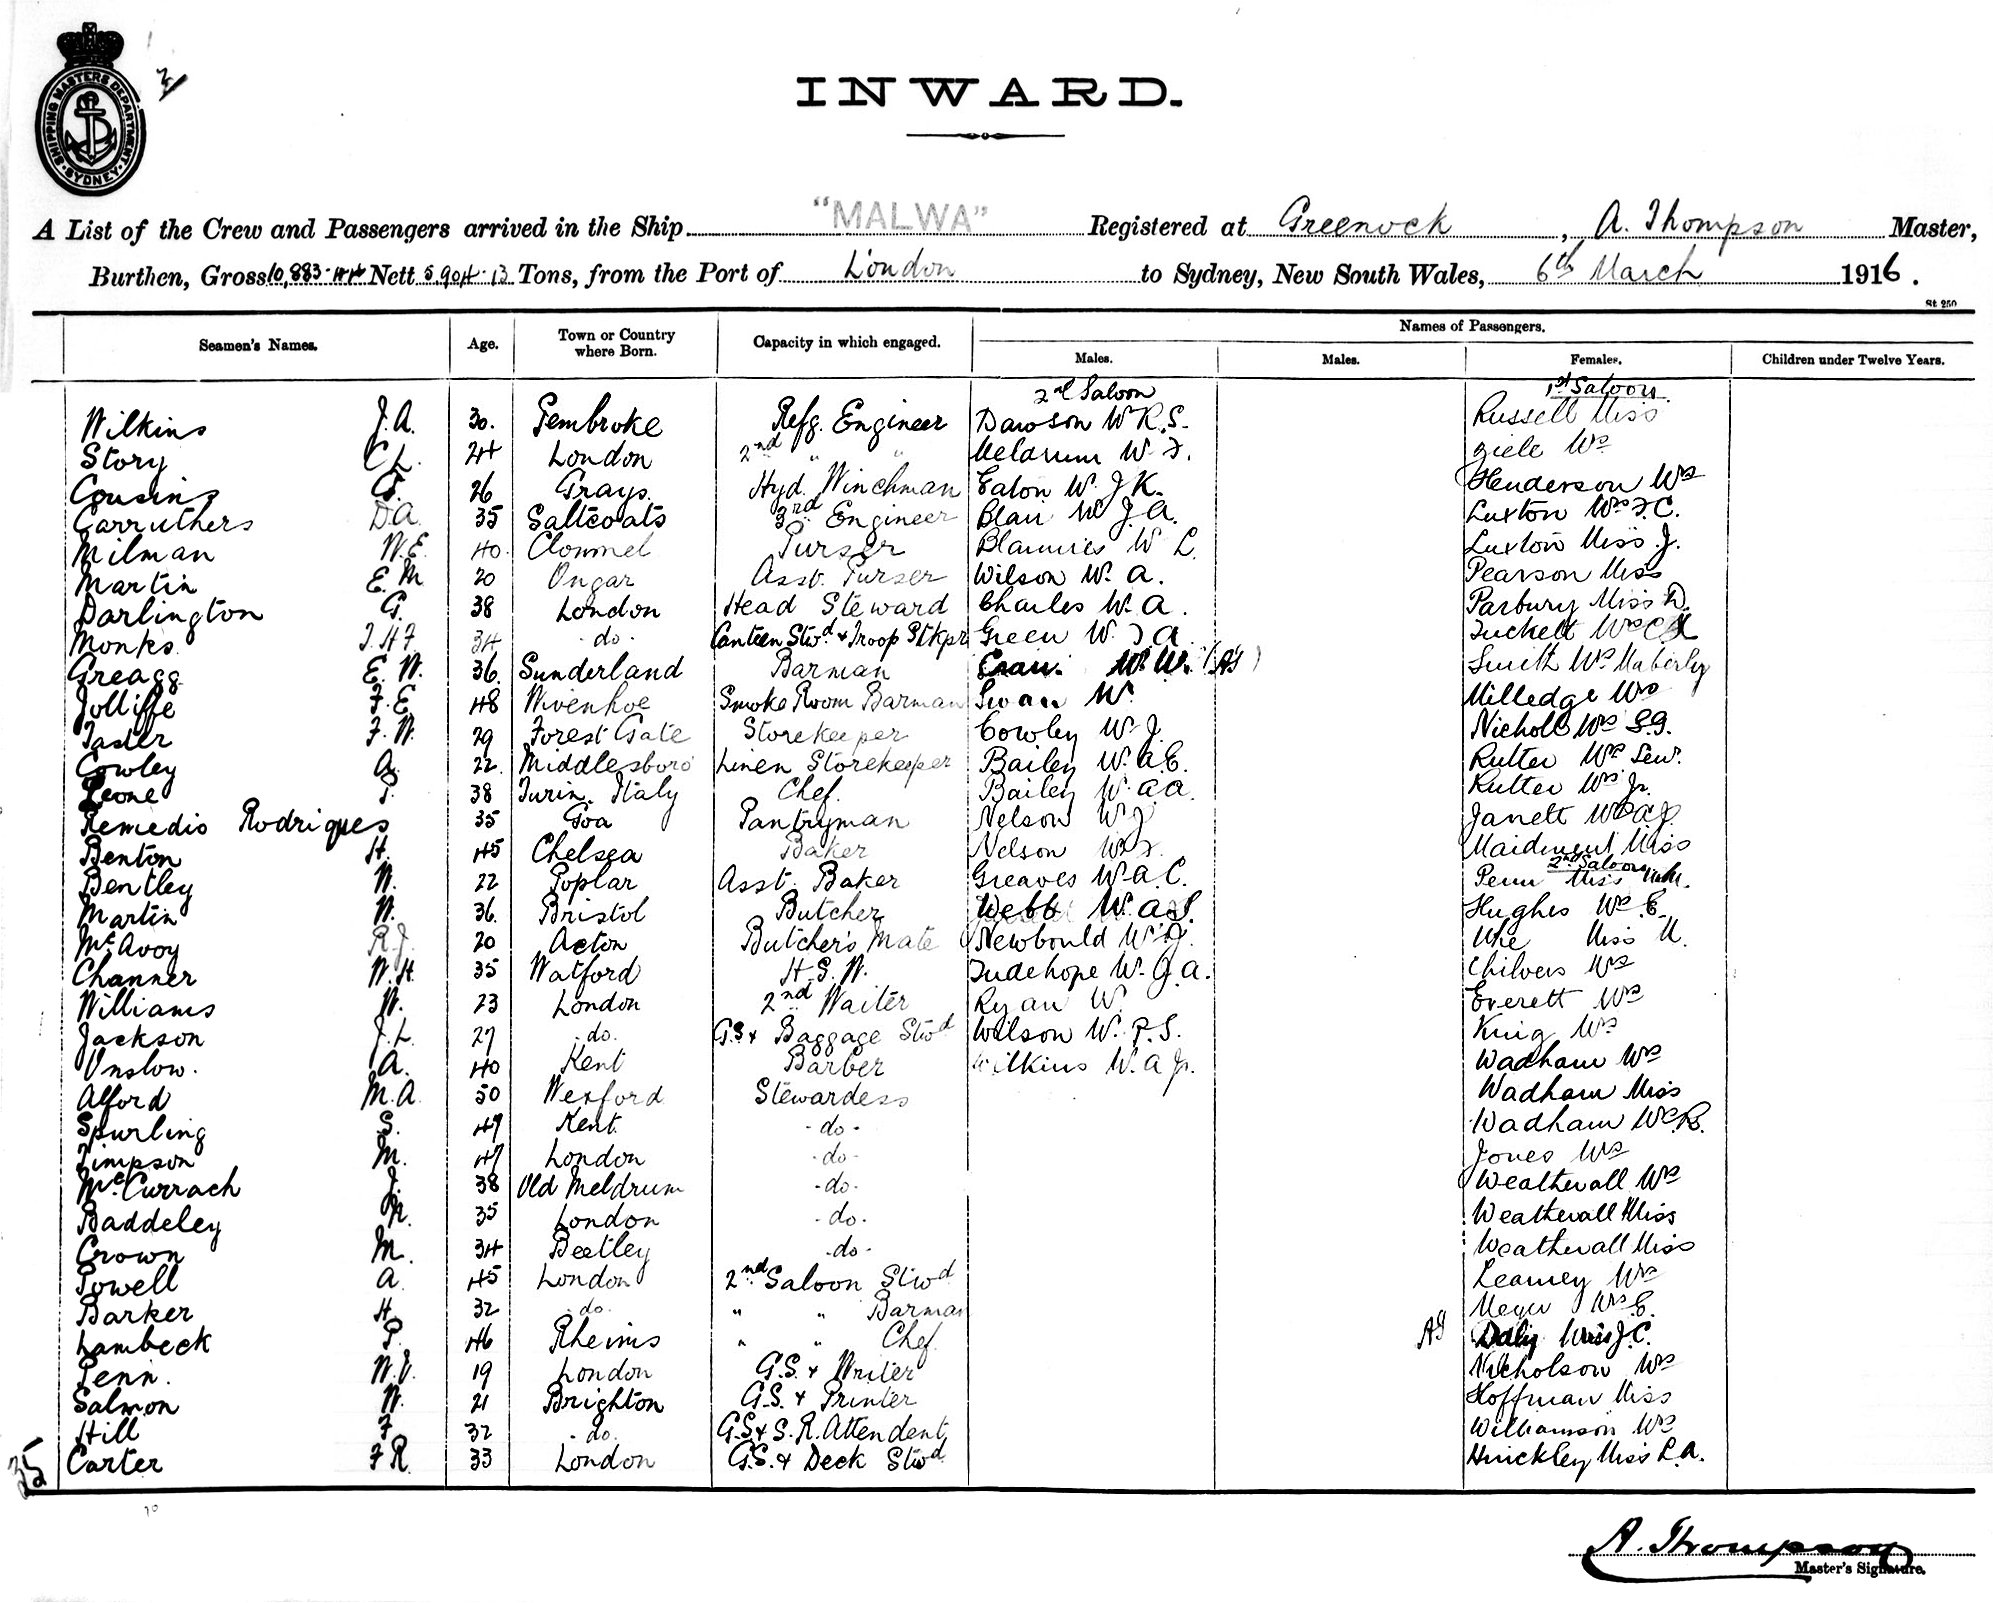 SHIPPING MASTERS DEPARTMENT · SYDNEY ·
INWARD.
A List of the Crew and Passengers arrived in the Ship "MALWA" Registered at Greenock, A. Thompson Master,
Burthen, Gross 10,883·44 Nett 5,904·13 Tons, from the Port of London to Sydney, New South Wales, 6th March 1916.
St 250
Names of Passengers.
Seamen's Names. Age. Town or Country where Born. Capacity in which engaged. Males. Males. Females. Children under Twelve Years.
2nd Saloon 1st Saloon
Wilkins J.A. 30. Pembroke Refg. Engineer Dawson Mr R.S. Russell Miss
Story C L. 24 London 2nd " " Meldrum Mr F. Ziele Mrs
Cousins G. 26 Grays. Hyd. Winchman Eaton Mr J K. Henderson Mrs
Carruthers D.A. 35 Saltcoats 3rd Engineer Blair Mr J.A. Luxton Mrs F.C.
Milman W.E. 40. Clonmel Purser Mr L. Luxton Miss J.
Martin E.M 20 Ongar Asst. Purser Wilson Mr A. Pearson Miss
Darlington G. 38 London Head Steward Charles Mr A. Parbury Miss D.
Monks. J.H.F 34 do. Canteen Stwd. & Troop Stkpr Green Mr F A. Tuckett Mrs C
Greagg E.W. 36. Sunderland Barman Mr W. (AS) Smith Mrs Maberly
Jolliffe F.E. 48 Wivenhoe Smoke Room Barman Swan Mr Milledge Mrs
Tasler F.W. 29 Forest Gate Storekeeper Cowley Mr J. Nicholl Mrs S.G.
Cowley A. 22. Middlesboro' Linen Storekeeper Bailey Mr A.E. Rutter Mrs Sen.
Leone P. 38 Turin. Italy Chef. Bailey Mr A A. Rutter Mrs Jr.
Remedis Rodrigues 35 Goa Pantryman Nelson Mr J Janett Mrs A J.
Benton H. 45 Chelsea Baker Nelson Mr F. Maidment Miss
2nd Saloon
Bentley W. 22 Poplar Asst. Baker Greaves Mr A.C. Penn Miss
Martin W. 36. Bristol Butcher Webb Mr A S. Hughes Mrs E.
McAvoy R.J. 20 Acton Butcher's Mate Newbould Mr J. Miss M.
Channer W.H. 35 Watford H.S.W. Tudehope Mr G.A. Chilvers Mrs
Williams W. 23 London 2nd Waiter Ryan Mr Everett Mrs
Jackson J.L. 27 do. G.S & Baggage Stwd Wilson Mr P.S. King Mrs
Onslow. A. 40 Kent Barber Wilkins Mr A Jr. Wadham Mrs
Alford M.A. 50 Wexford Stewardess Wadham Miss
Spurling S. 49 Kent. - do - Wadham Mrs R.
Timpson M. 47 London - do - Jones Mrs
McCurrach J. 38 Old Meldrum - do - Weatherall Mrs
Baddeley 35 London - do - Weatherall Miss
Crown M. 34 Beetley - do - Weatherall Miss
Powell A. 45 London 2nd Saloon Stwd Learney Mrs
Barker H. 32 do. " " Barman Meyer Mrs E.
Lambeck P. 46 Rheims " " Chef AS Daly Miss J.C.
Penn. W.E. 19 London G.S. & Writer Nicholson Mrs
Salmon W. 21 Brighton G.S. & Printer Hoffman Miss
Hill F 32 do. G.S & S.R. Attendent Williamson Mrs
35 Carter F R. 33 London G.S. & Deck Stwd Hinckley Miss L.A.
A. Thompson
Master's Signature.